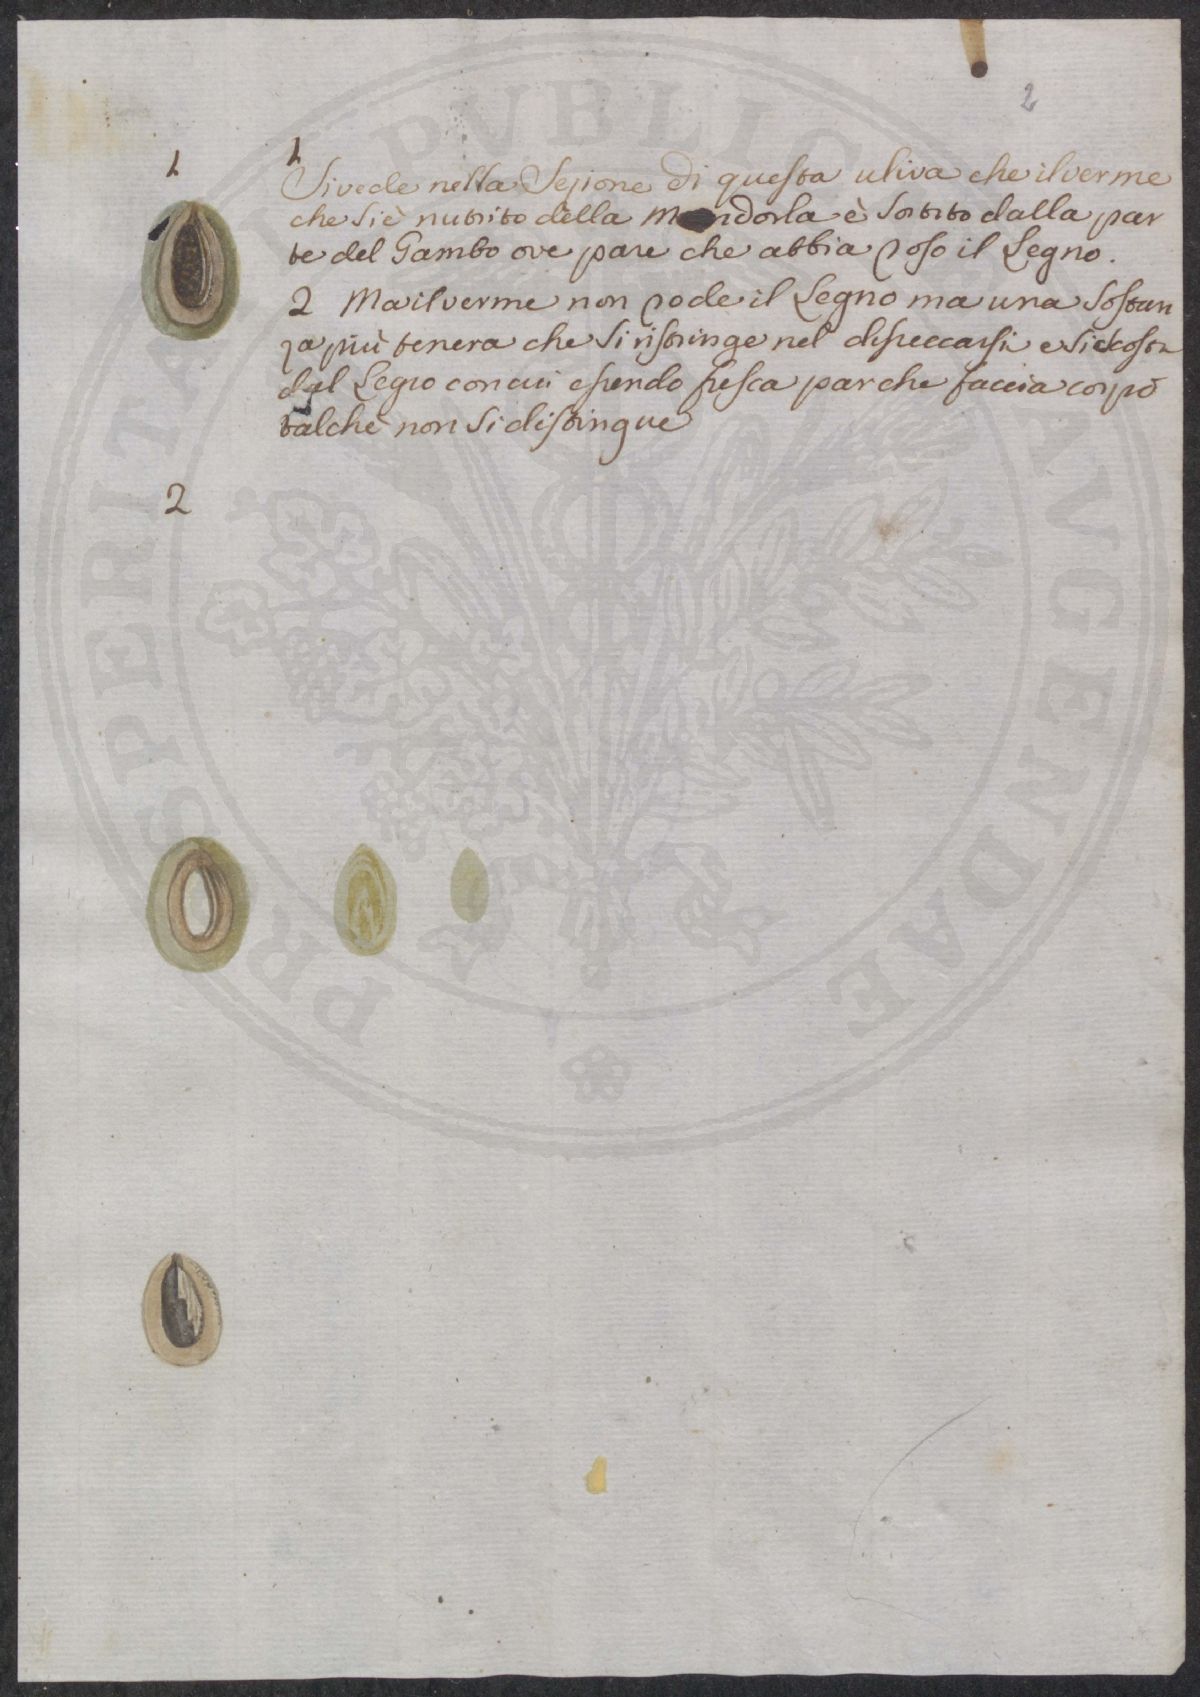 2
1
1
Si vede nella Sezione di questa uliva che il verme
che si è nutrito della Mandorla è sortito dalla par
te del Gambo ove pare che abbia roso il Legno.
2 Ma il verme non rode il Legno ma una Sostan
za più tenera che si ristringe nel diseccarsi e si dcosta
dal Legno con cui essendo fresca par che faccia corpo
talchè non si distingue
2
PROSPERITATI PVBLICAE AVGENDAE